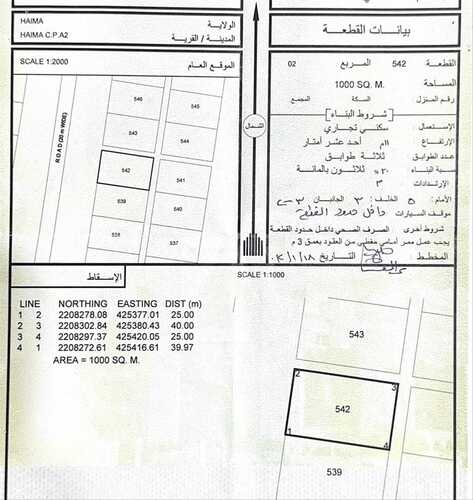 HAIMA
الولايـة
HAIMA C.P.A2
المدينة / القرية
بيانات القطعـة
SCALE 1:2000
الموقع العام
القطعة 542 المربع 02
المساحة 1000 SQ. M.
رقم المنزل السكة المجمع
[شروط البناء]
الإستعمال: سكني تجاري
الإرتفاع ١١م أحد عشر أمتار
عدد الطوابق ثلاثة طوابق
نسبة البناء ٣٠% ثلاثون بالمائة
الإرتدادات ٣م
الأمام: ٥ الخلف: ٣ الجانبان ٣
موقف السيارات داخل حدود القطعة
شروط أخرى الصرف الصحي داخل حدود القطعة
يجب عمل ممر أمامي مغطي من العقود بعمق 3 م
المخطط: التاريخ
الشمال
ROAD (20 m WIDE)
546
545
543
544
542
541
539
540
538
537
الإسقاط
SCALE 1:1000
LINE NORTHING EASTING DIST (m)
1 2 2208278.08 425377.01 25.00
2 3 2208302.84 425380.43 40.00
3 4 2208297.37 425420.05 25.00
4 1 2208272.61 425416.61 39.97
AREA = 1000 SQ. M.
543
2
3
542
1
4
539